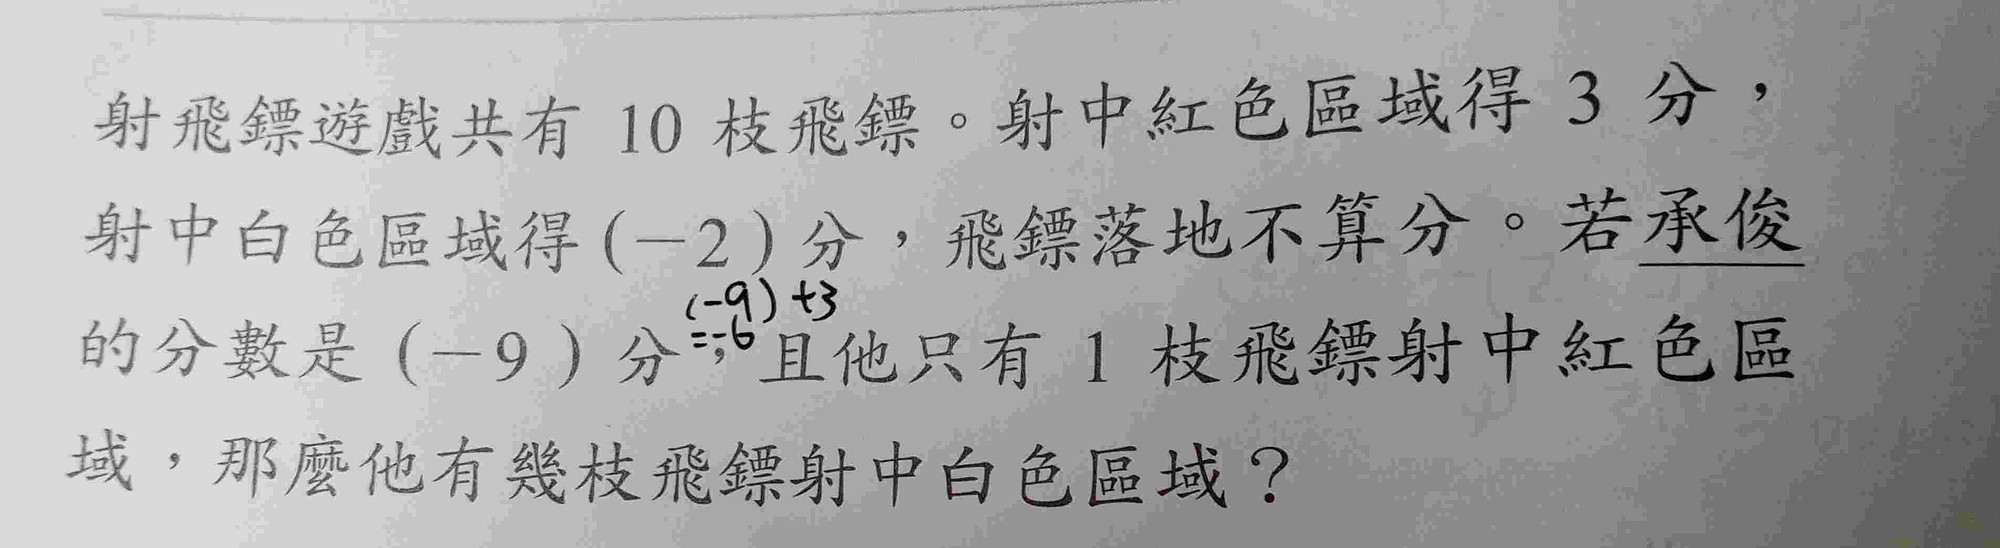 射飛鏢遊戲共有 10 枝飛鏢。射中紅色區域得 3 分，
射中白色區域得(－2)分，飛鏢落地不算分。若承俊
(-9)+3
=-6
的分數是(－9)分，且他只有 1 枝飛鏢射中紅色區
域，那麼他有幾枝飛鏢射中白色區域？